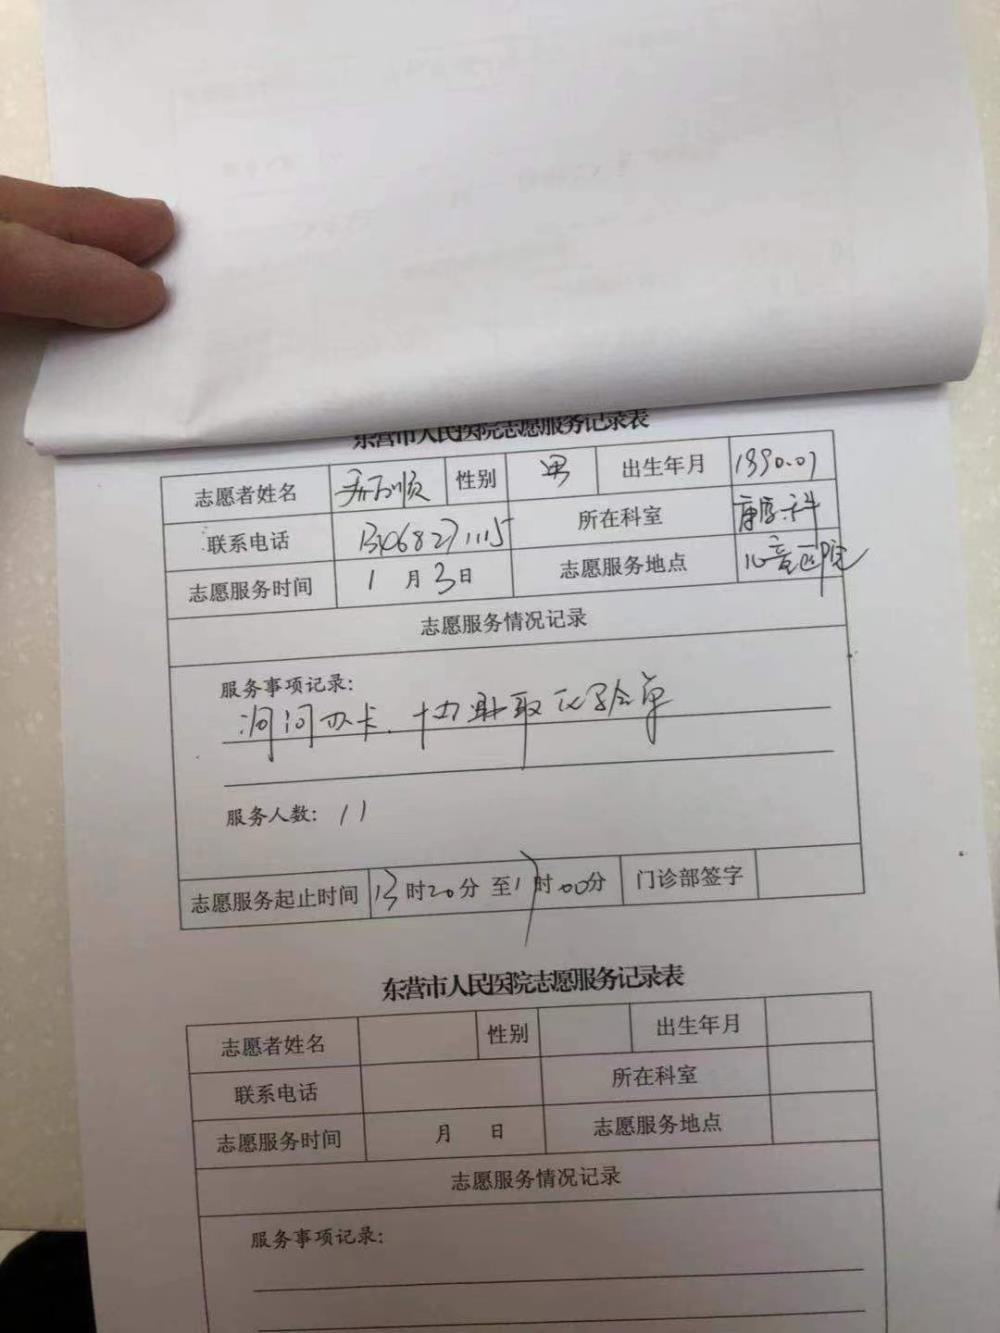 东营市人民医院志愿服务记录表
志愿者姓名 性别 男 出生年月 1990.07
联系电话 所在科室 康复科
志愿服务时间 1月3日 志愿服务地点 儿童医院
志愿服务情况记录
服务事项记录:
询问办卡.协助取化验单
服务人数: 11
志愿服务起止时间 13时20分 至17时00分 门诊部签字
东营市人民医院志愿服务记录表
志愿者姓名 性别 出生年月
联系电话 所在科室
志愿服务时间 月 日 志愿服务地点
志愿服务情况记录
服务事项记录: